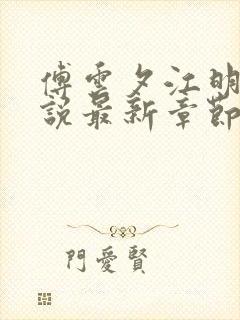 傅雲夕江明
說最新章節
門愛賢